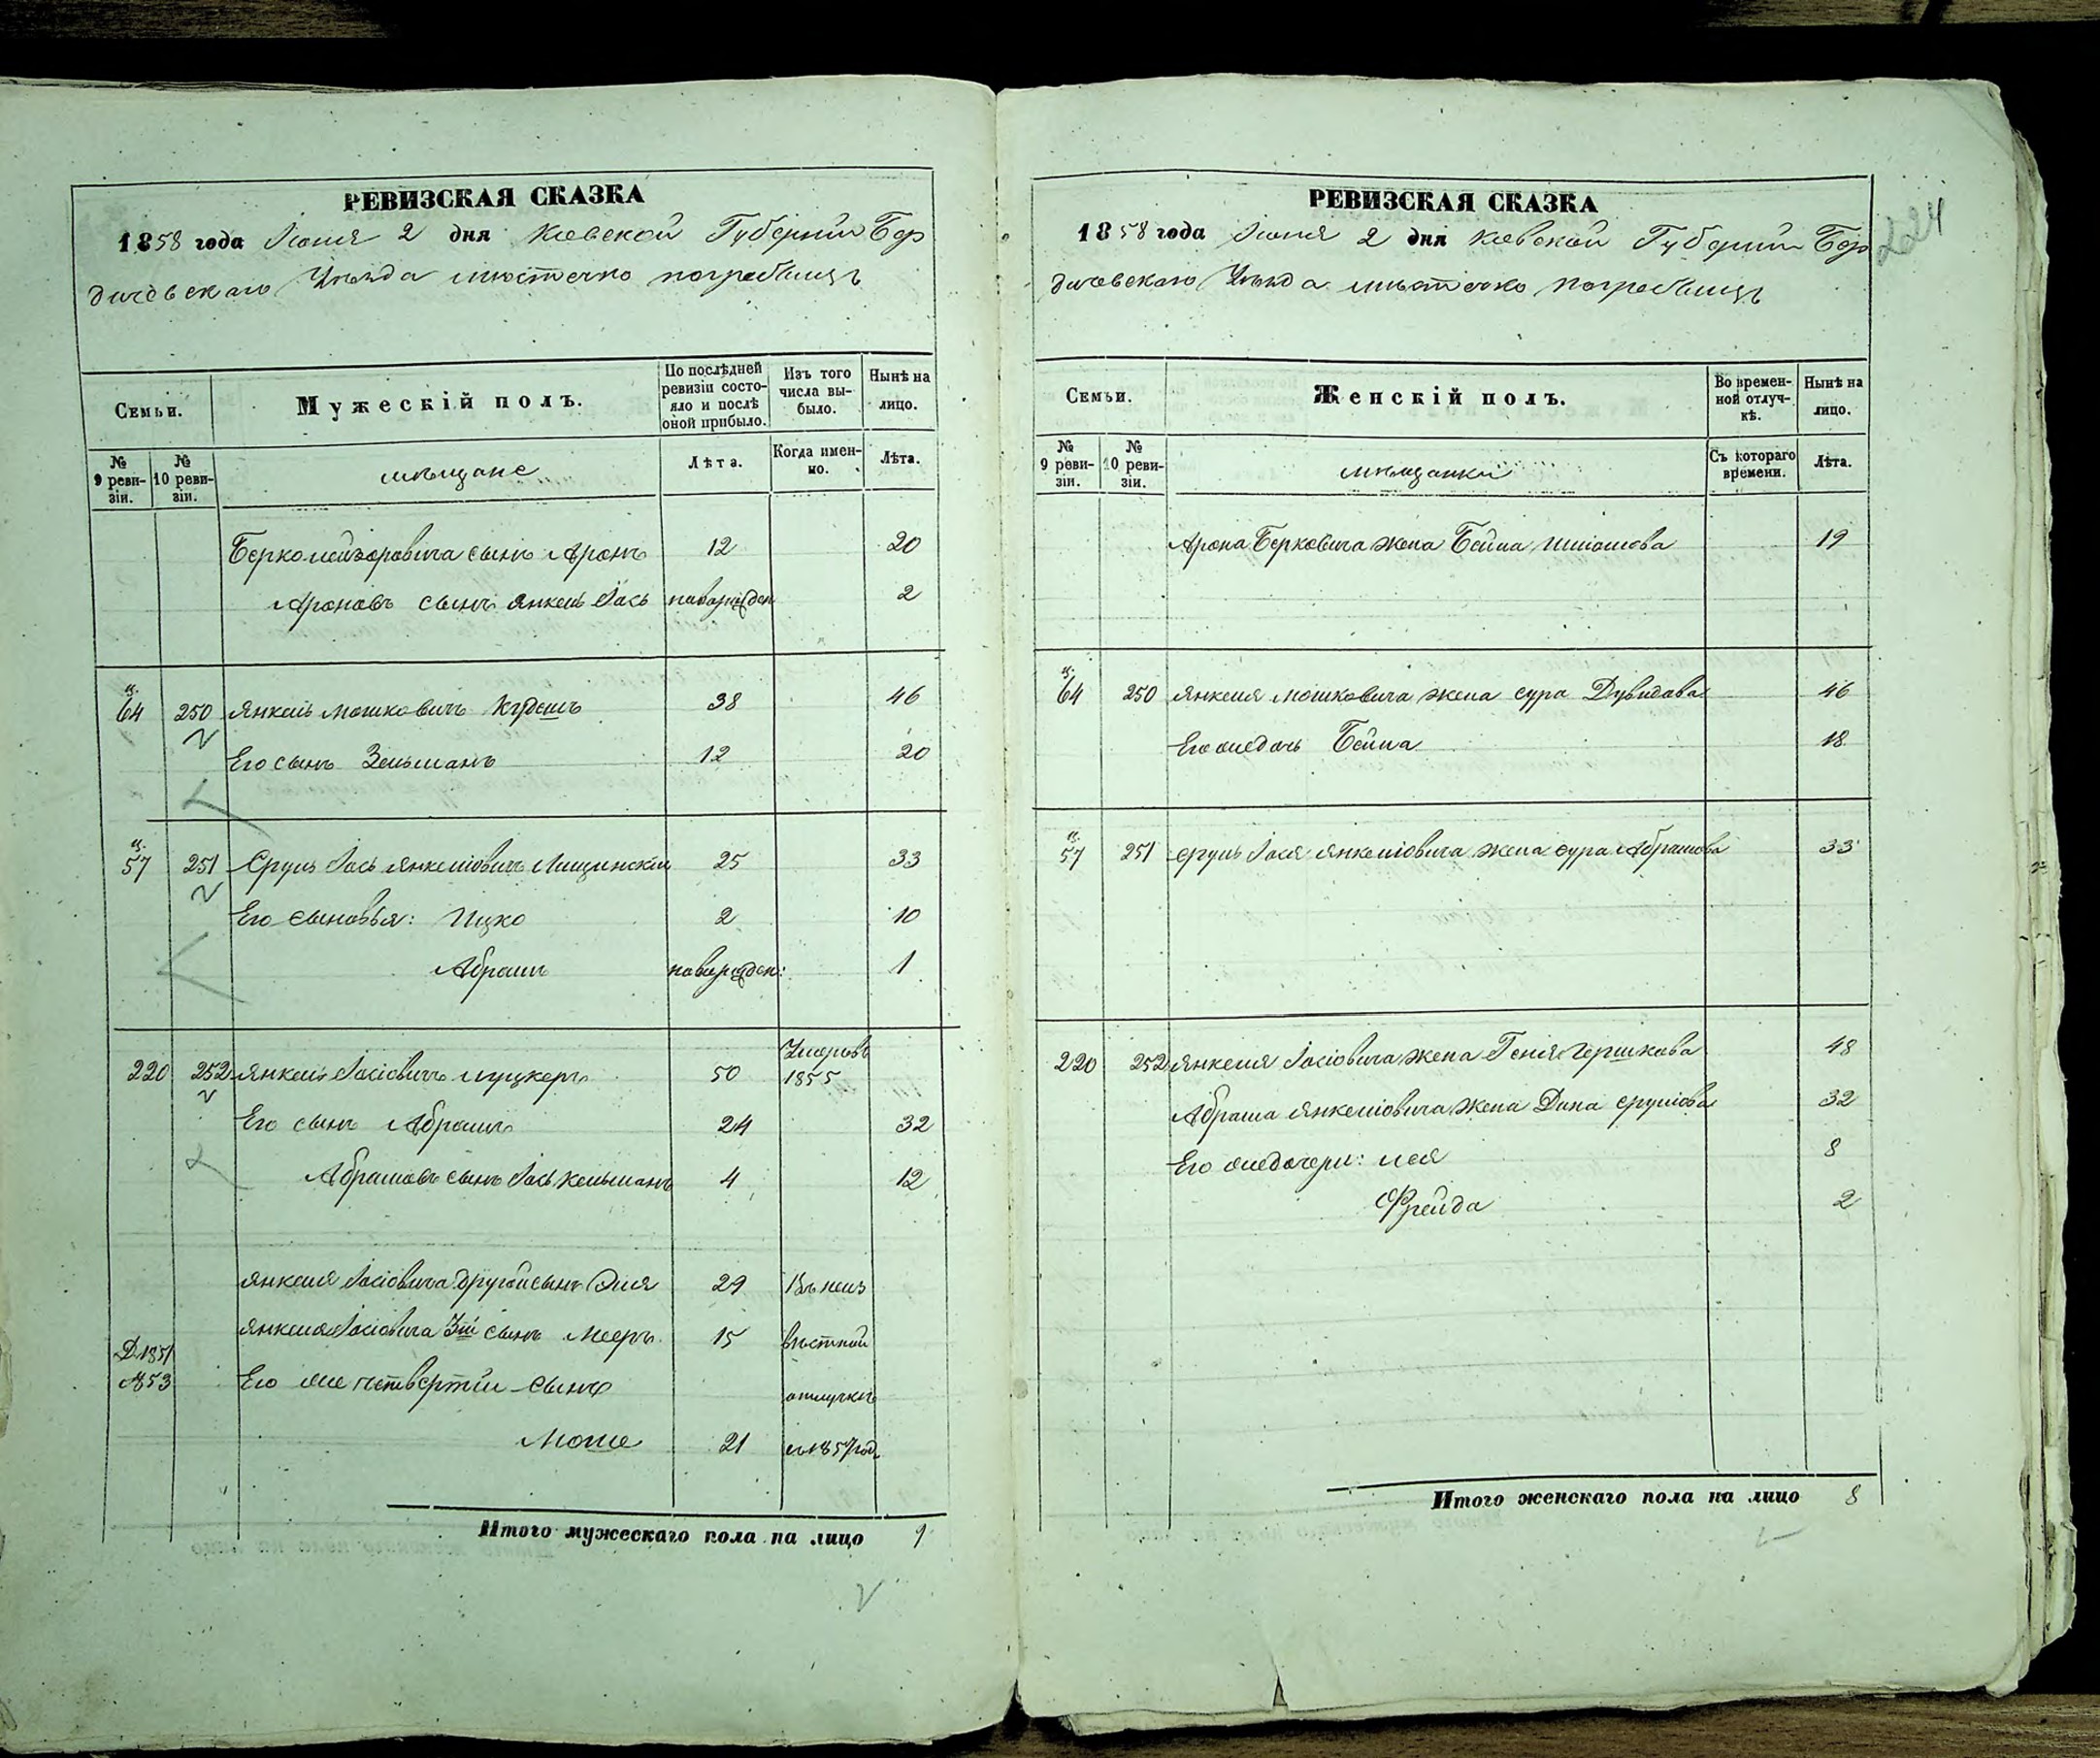 РЕВИЗСКАЯ СКАЗКА
1858 года Іюня 2 дня Кіевской Губерніи Бер
дичевскаго Уѣзда мѣстечко Погребищъ
Семьи.
Мужескій полъ.
По послѣдней ревизіи состояло и послѣ оной прибыло.
Изъ того числа выбыло.
Нынѣ на лицо.
№ 9 ревизіи.
№ 10 ревизіи.
мѣщане
Лѣта.
Когда именно.
Лѣта.
Берко Лейзоровича сынъ Аронъ 12 20
Ароновъ сынъ Янкель Іось новорожден 2
64 250 Янкель Мошковичъ 38 46
Его сынъ Зельманъ 12 20
57 251 Сруль Іось Янкелiовичъ Лищинскій 25 33
Его сыновья: Ицко 2 10
Абрамъ новорожден: 1
220 252 Янкель Іосіовичъ Цуцкеръ 50 Умеръ въ 1855
Его сынъ Абрамъ 24 32
Абрамовъ сынъ Іось Кельманъ 4 12
Янкеля Іосіовича другой сынъ Эля 29 Въ неиз
Янкеля Іосіовича 3й сынъ Мееръ 15 вѣстной
Д 1851
№53 Его же четвертый сынъ отлучкѣ
Моше 21 съ 1857 год
Итого мужескаго пола на лицо 9
РЕВИЗСКАЯ СКАЗКА
1858 года Іюня 2 дня Кіевской Губерніи Бер
дичевскаго Уѣзда мѣстечко Погребищъ
224
Семьи.
Женскій полъ.
Во временной отлучкѣ.
Нынѣ на лицо.
№ 9 ревизіи.
№ 10 ревизіи.
мѣщанки
Съ котораго времени.
Лѣта.
Арона Берковича жена Бейла 19
64 250 Янкеля Мошковича жена Сура Дувидова 46
Его же дочь Бейла 18
57 251 Сруль Іося Янкелiовича жена Сура Абрамова 33
220 252 Янкеля Іосіовича жена Геня Гершкова 48
Абрама Янкелiовича жена Дина Сруліова 32
Его же дочери: Лея 8
Фрейда 2
Итого женскаго пола на лицо 8